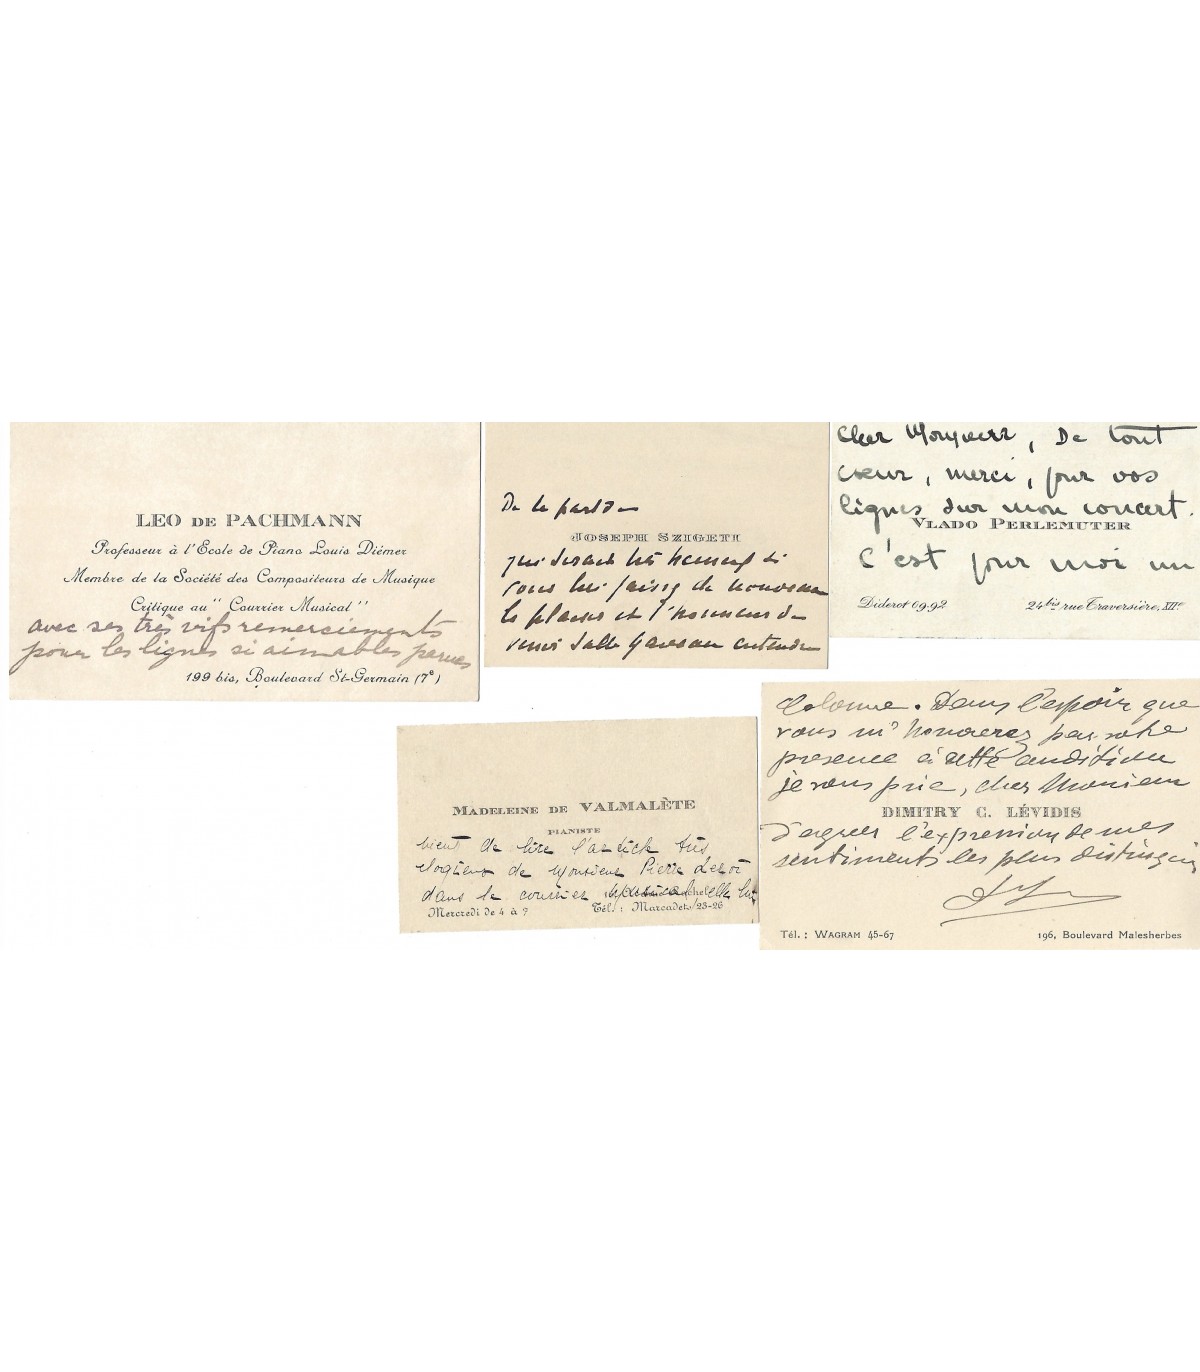 LEO DE PACHMANN
Professeur à l'École de Piano Louis Diémer
Membre de la Société des Compositeurs de Musique
Critique au "Courrier Musical"
avec ses très vifs remerciements
pour les lignes si aimables parues
199 bis, Boulevard St-Germain (7e)
De la part de
JOSEPH SZIGETI
qui serait très heureux si
vous lui faisiez de nouveau
le plaisir et l'honneur de
venir Salle Gaveau entendre
Cher Monsieur, De tout
cœur, merci, pour vos
lignes sur mon concert.
VLADO PERLEMUTER
C'est pour moi un
Diderot 09.92 24bis rue Traversière, XIIe
MADELEINE DE VALMALÈTE
PIANISTE
vient de lire l'article très
élogieux de Monsieur Pierre Leroi
dans le courrier musical, elle
Mercredi de 4 à 7 Tél.: Marcadet 23-26
Colonne. Dans l'espoir que
vous m'honorerez par votre
presence à cette audition
je vous prie, cher Monsieur
DIMITRY C. LÉVIDIS
d'agreer l'expression de mes
sentiments les plus distingués
Tél.: WAGRAM 45-67 196, Boulevard Malesherbes